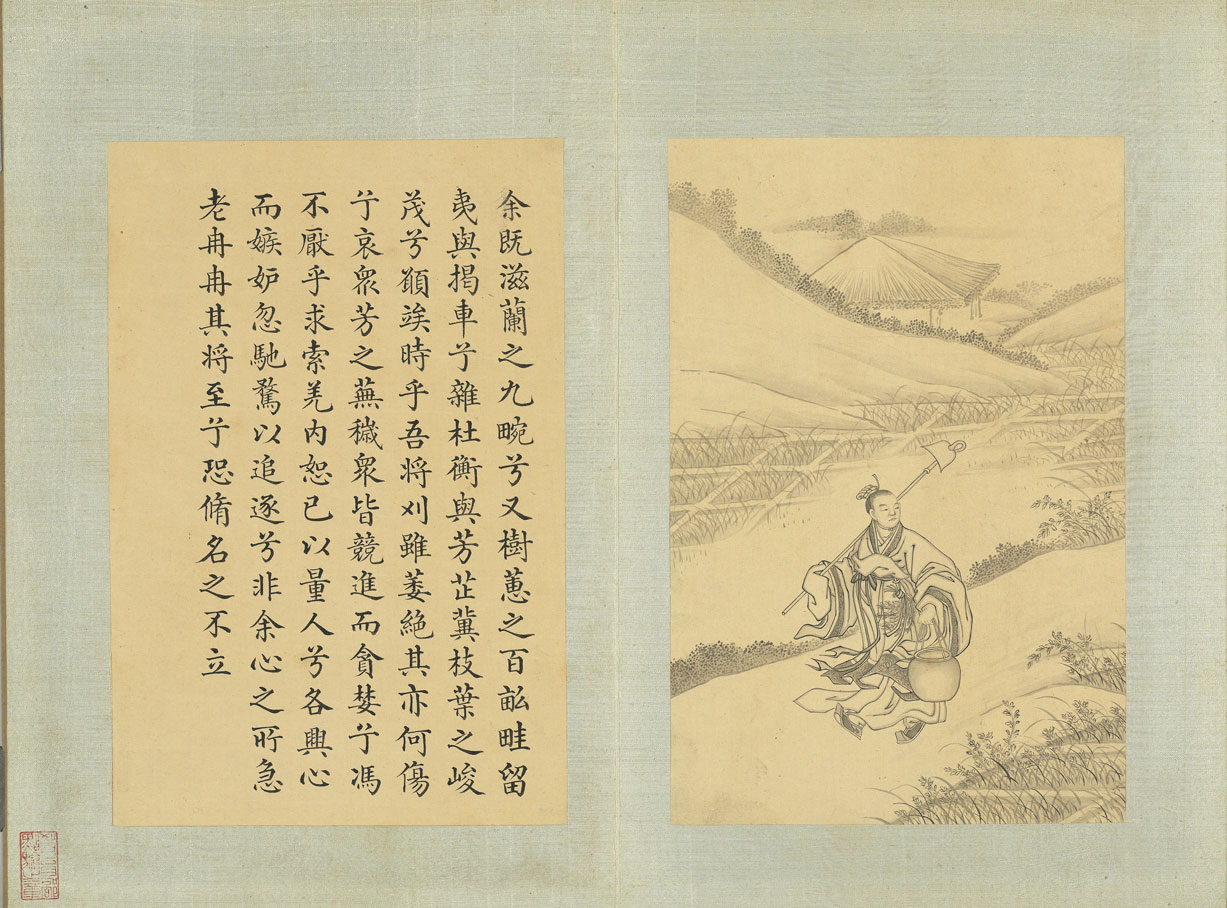 余既滋蘭之九畹兮又樹蕙之百畝畦留
夷與揭車兮雜杜衡與芳芷冀枝葉之峻
茂兮願竢時乎吾将刈雖萎絶其亦何傷
兮哀衆芳之蕪穢衆皆競進而貪婪兮馮
不厭乎求索羌内恕己以量人兮各興心
而嫉妒忽馳騖以追逐兮非余心之所急
老冉冉其将至兮恐脩名之不立